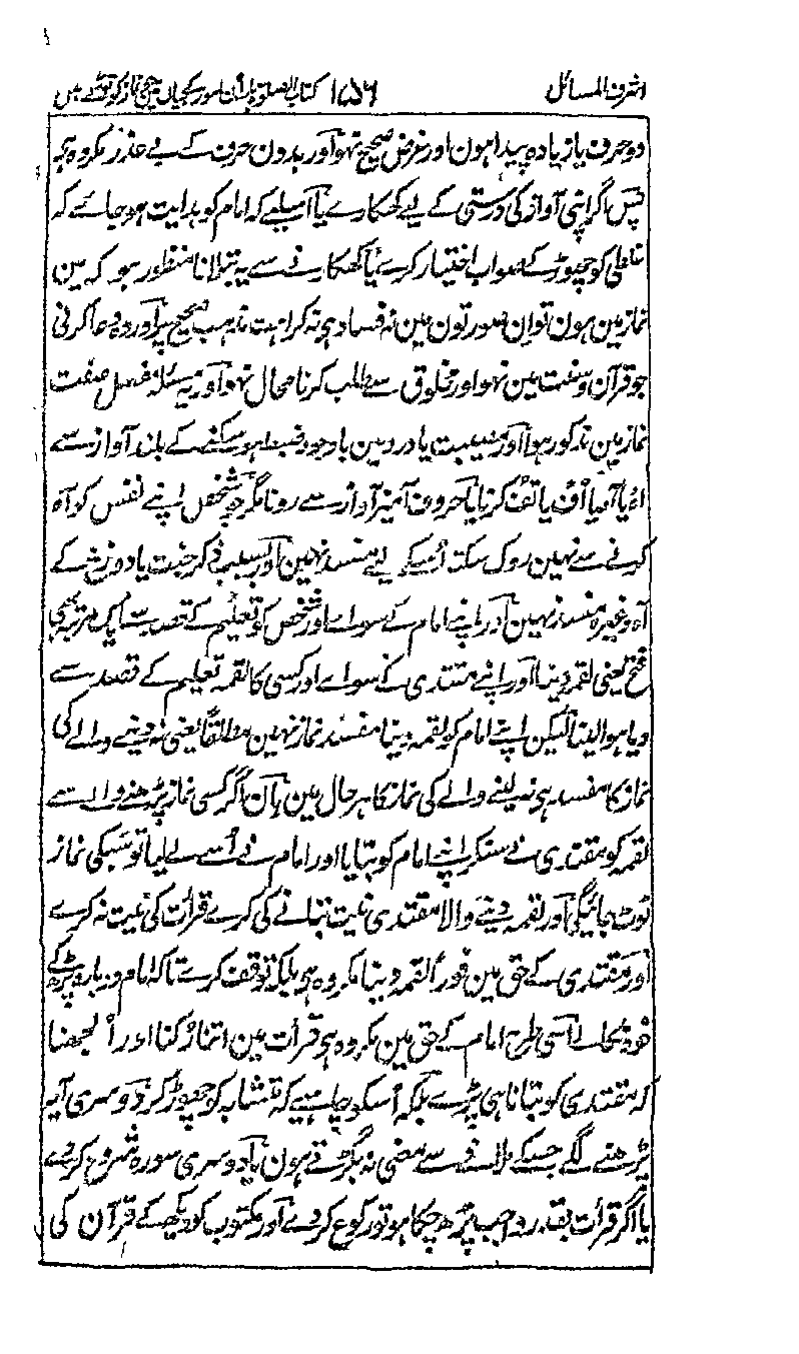 اشرف المسائل ۱۵۶ کتاب الصلوۃ بیان امور کہ جان جو نماز کو توڑتے ہیں
دو حرف یا زیادہ پیدا ہون اور غرض صحیح نہو اور بدون حرف کے بے عذر مکروہ ہی
پس اگر اپنی آواز کی درستی کے لیے کھکارے یا اسلیے کہ امام کو ہدایت ہو جاے کہ
غلطی کو چھوڑ کے صواب اختیار کرے یا کھکارنے سے یہ بتلانا منظور ہو کہ مین
نماز مین ہون تو ان صورتون مین نہ فساد ہی نہ کراہت مذہب صحیح پر اور وہ دعا کرنی
جو قرآن و سنت مین نہو اور مخلوق سے طلب کرنا محال نہو اور یہ مسئلہ فصل صفت
نماز مین مذکور ہوا اور مصیبت یا درد مین باوجود ضبط ہو سکنے کے بلند آواز سے
اہ یا آہ یا اُف یا تف کرنا یا حروف آمیز آواز سے رونا مگر جو شخص اپنے نفس کو آہ
کرنے سے نہین روک سکتا اُسکے لیے مفسد نہین اور بسبب ذکر جنت یا دوزخ کے
آہ وغیرہ مفسد نہین اور اپنے امام کے سواے اور شخص کو تعلیم کے قصد سے ایک مرتبہ بھی
فتح یعنی لقمہ دینا اور اپنے مقتدی کے سواے اور کسی کا لقمہ تعلیم کے قصد سے
دیا ہوا لینا لیکن اپنے امام کو لقمہ دینا مفسد نماز نہین مطلقاً یعنی نہ دینے والے کی
نماز کا مفسد ہی نہ لینے والے کی نماز کا ہر حال مین ہان اگر کسی نماز پڑھنے والے سے
لقمہ کو مقتدی نے سنکر اپنے امام کو بتایا اور امام نے اُسے لے لیا تو سبکی نماز
ٹوٹ جائیگی اور لقمہ دینے والا مقتدی نیت بتانے کی کرے قرأت کی نیت نہ کرے
اور مقتدی کے حق مین فوراً لقمہ دینا مکروہ ہی بلکہ توقف کرے تاکہ امام دوبارہ پڑھکے
خود نکالے اسی طرح امام کے حق مین مکروہ ہی قرأت مین اتنا رُکنا اور اُلجھنا
کہ مقتدی کو بتانا ہی پڑے بلکہ اُسکو چاہیے کہ متشابہ کو چھوڑ کر دوسری آیہ
پڑھنے لگے جسکے ملانے سے معنی نہ بگڑتے ہون یا دوسری سورہ شروع کردے
یا اگر قرأت بقدر واجب پڑھ چکا ہو تو رکوع کردے اور مکتوب کو دیکھ کے قرآن کی